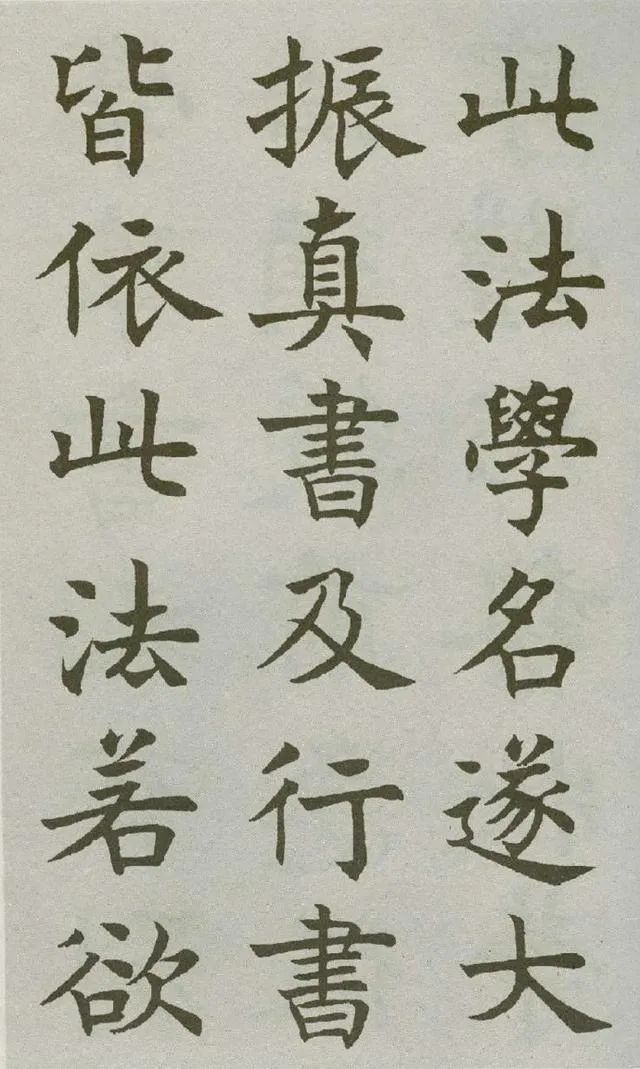 此法學名遂大
振真書及行書
皆依此法若欲